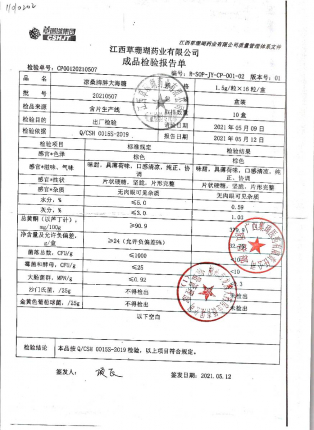 草珊瑚集团
江西草珊瑚药业有限公司质量管理体系文件
江西草珊瑚药业有限公司
成品检验报告单
检验单号：CP00120210507
编号：R-SOP-JY-CP-001-02 版本号：01
品名
1.5g/粒×16粒/盒
批号 20210507 盒装
检品来源 含片生产线 10盒
检验目的 出厂检验 2021年05月09日
检验依据 Q/CSH 0016S-2019 2021年05月12日
检验项目 标准规定 检验结果
感官*色泽 棕色 棕色
感官*滋味、气味 味甜，具薄荷味，口感清凉，纯正、协调 味甜，具薄荷味，口感清凉，纯正、协调
感官*性状 片状硬糖，坚固，片形完整 片状硬糖，坚固，片形完整
感官*杂质 无肉眼可见杂质 无肉眼可见杂质
水分，% ≤5.0 0.59
灰分，% ≤3.0 1.03
总黄酮（以芦丁计），mg/100g ≥90.9
净含量及允许负偏差，g/盒 ≥24（允许负偏差9%）
菌落总数，CFU/g ≤1000
霉菌和酵母，CFU/g ≤25
大肠菌群，MPN/g ≤0.92
沙门氏菌，/25g 不得检出 未检出
金黄色葡萄球菌，/25g 不得检出 未检出
以下空白
检验结论 本品按Q/CSH 0016S-2019检验，以上项目符合规定。
签发人：
签发日期：2021.05.12